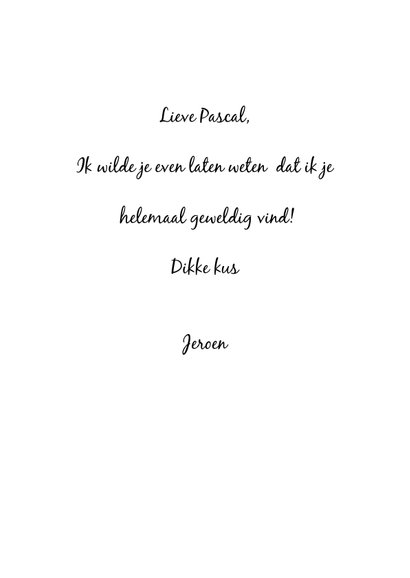 Lieve Pascal,
Ik wilde je even laten weten  dat ik je
helemaal geweldig vind!
Dikke kus
Jeroen